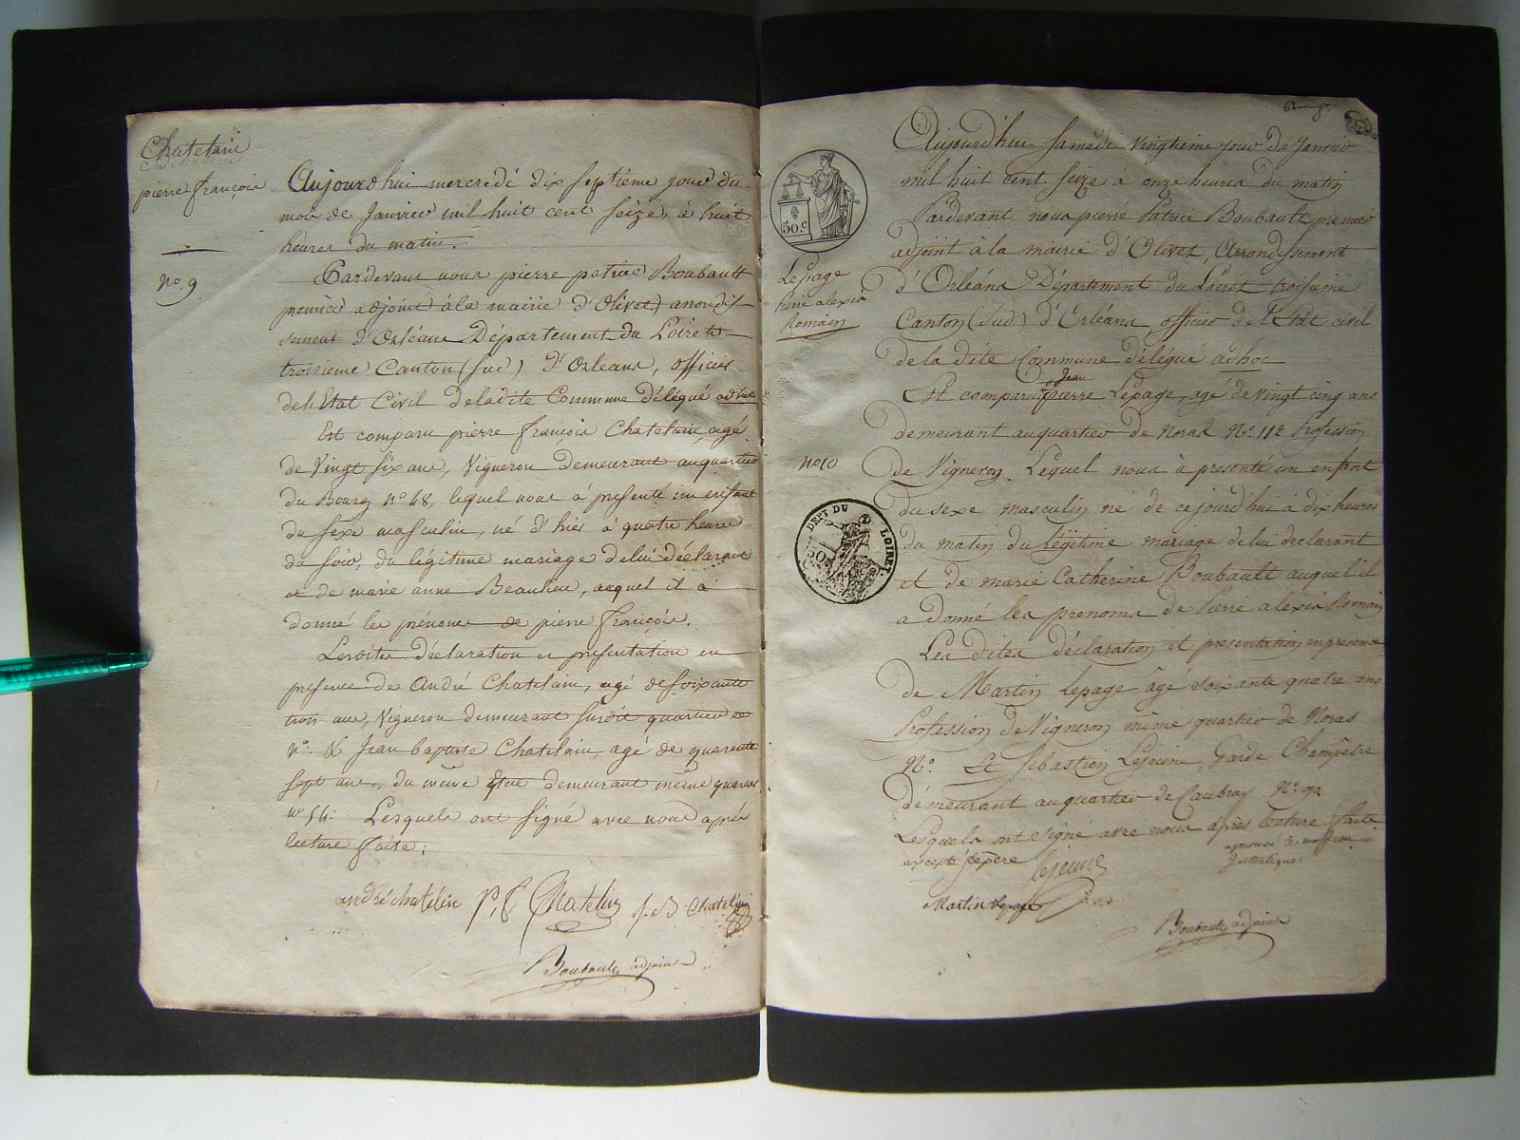 Chatelain
pierre françois
No 9
Aujourd'hui mercredi dix septieme jour du
mois de Janvier mil huit cent seize, à huit
heures du matin.
Pardevant nous pierre patrice Boubault
premier adjoint à la mairie d'Olivet, arrondis-
sement d'Orléans Département du Loiret
troisieme Canton (sud) d'Orleans, officier
de l'Etat Civil de ladite Commune délégué ad hoc
Est comparu pierre françois Chatelain, agé
de Vingt six ans, Vigneron demeurant au quartier
du Bourg no 48, lequel nous à presenté un enfant
du sexe masculin, né d'hier à quatre heures
du soir, du légitime mariage de lui déclarant
et de marie anne Beaulieu, auquel il à
donné les prénoms de pierre françois.
Lesdites déclaration et présentation en
presence de André Chatelain, agé de soixante
trois ans, Vigneron demeurant susdit quartier
no. & Jean baptiste Chatelain, agé de quarante
sept ans, du même Etat demeurant même quartier
no 54. Lesquels ont signé avec nous après
lecture faite.
andré chatelin P. f Chatelin J. B Chatelain
Boubault adjoint
50.c
Lepage
pierre alexis
Romain
no 10
DEPT DU LOIRET
Aujourd'hui samedi vingtieme jour de Janvier
mil huit cent seize à onze heures du matin
Pardevant nous pierre Patrice Boubault premier
adjoint à la mairie d'Olivet, Arrondissement
d'Orléans Département du Loiret troisieme
Canton (Sud) d'Orléans officier de l'Etat civil
de la dite Commune délégué ad hoc
Jean
Est comparu pierre Lepage, agé de vingt cinq ans
demeurant au quartier de Noras No. 112 Profession
de Vigneron. Lequel nous à presenté un enfant
du sexe masculin né de ce jourd'hui à dix heures
du matin du légitime mariage de lui declarant
et de marie Catherine Boubault auquel il
a donné les prenoms de Pierre alexis Romain
Les dites déclaration et presentation en presence
de Martin Lepage âgé soixante quatre ans
Profession de Vigneron même quartier de Noras
No. Et Sébastien Lejeune Garde Champêtre
Demeurant au quartier de Caubray No. 92
Lesquels ont signé avec nous après lecture faite
excepté le père
Lejeune
Martin lepage
Boubault adjoint